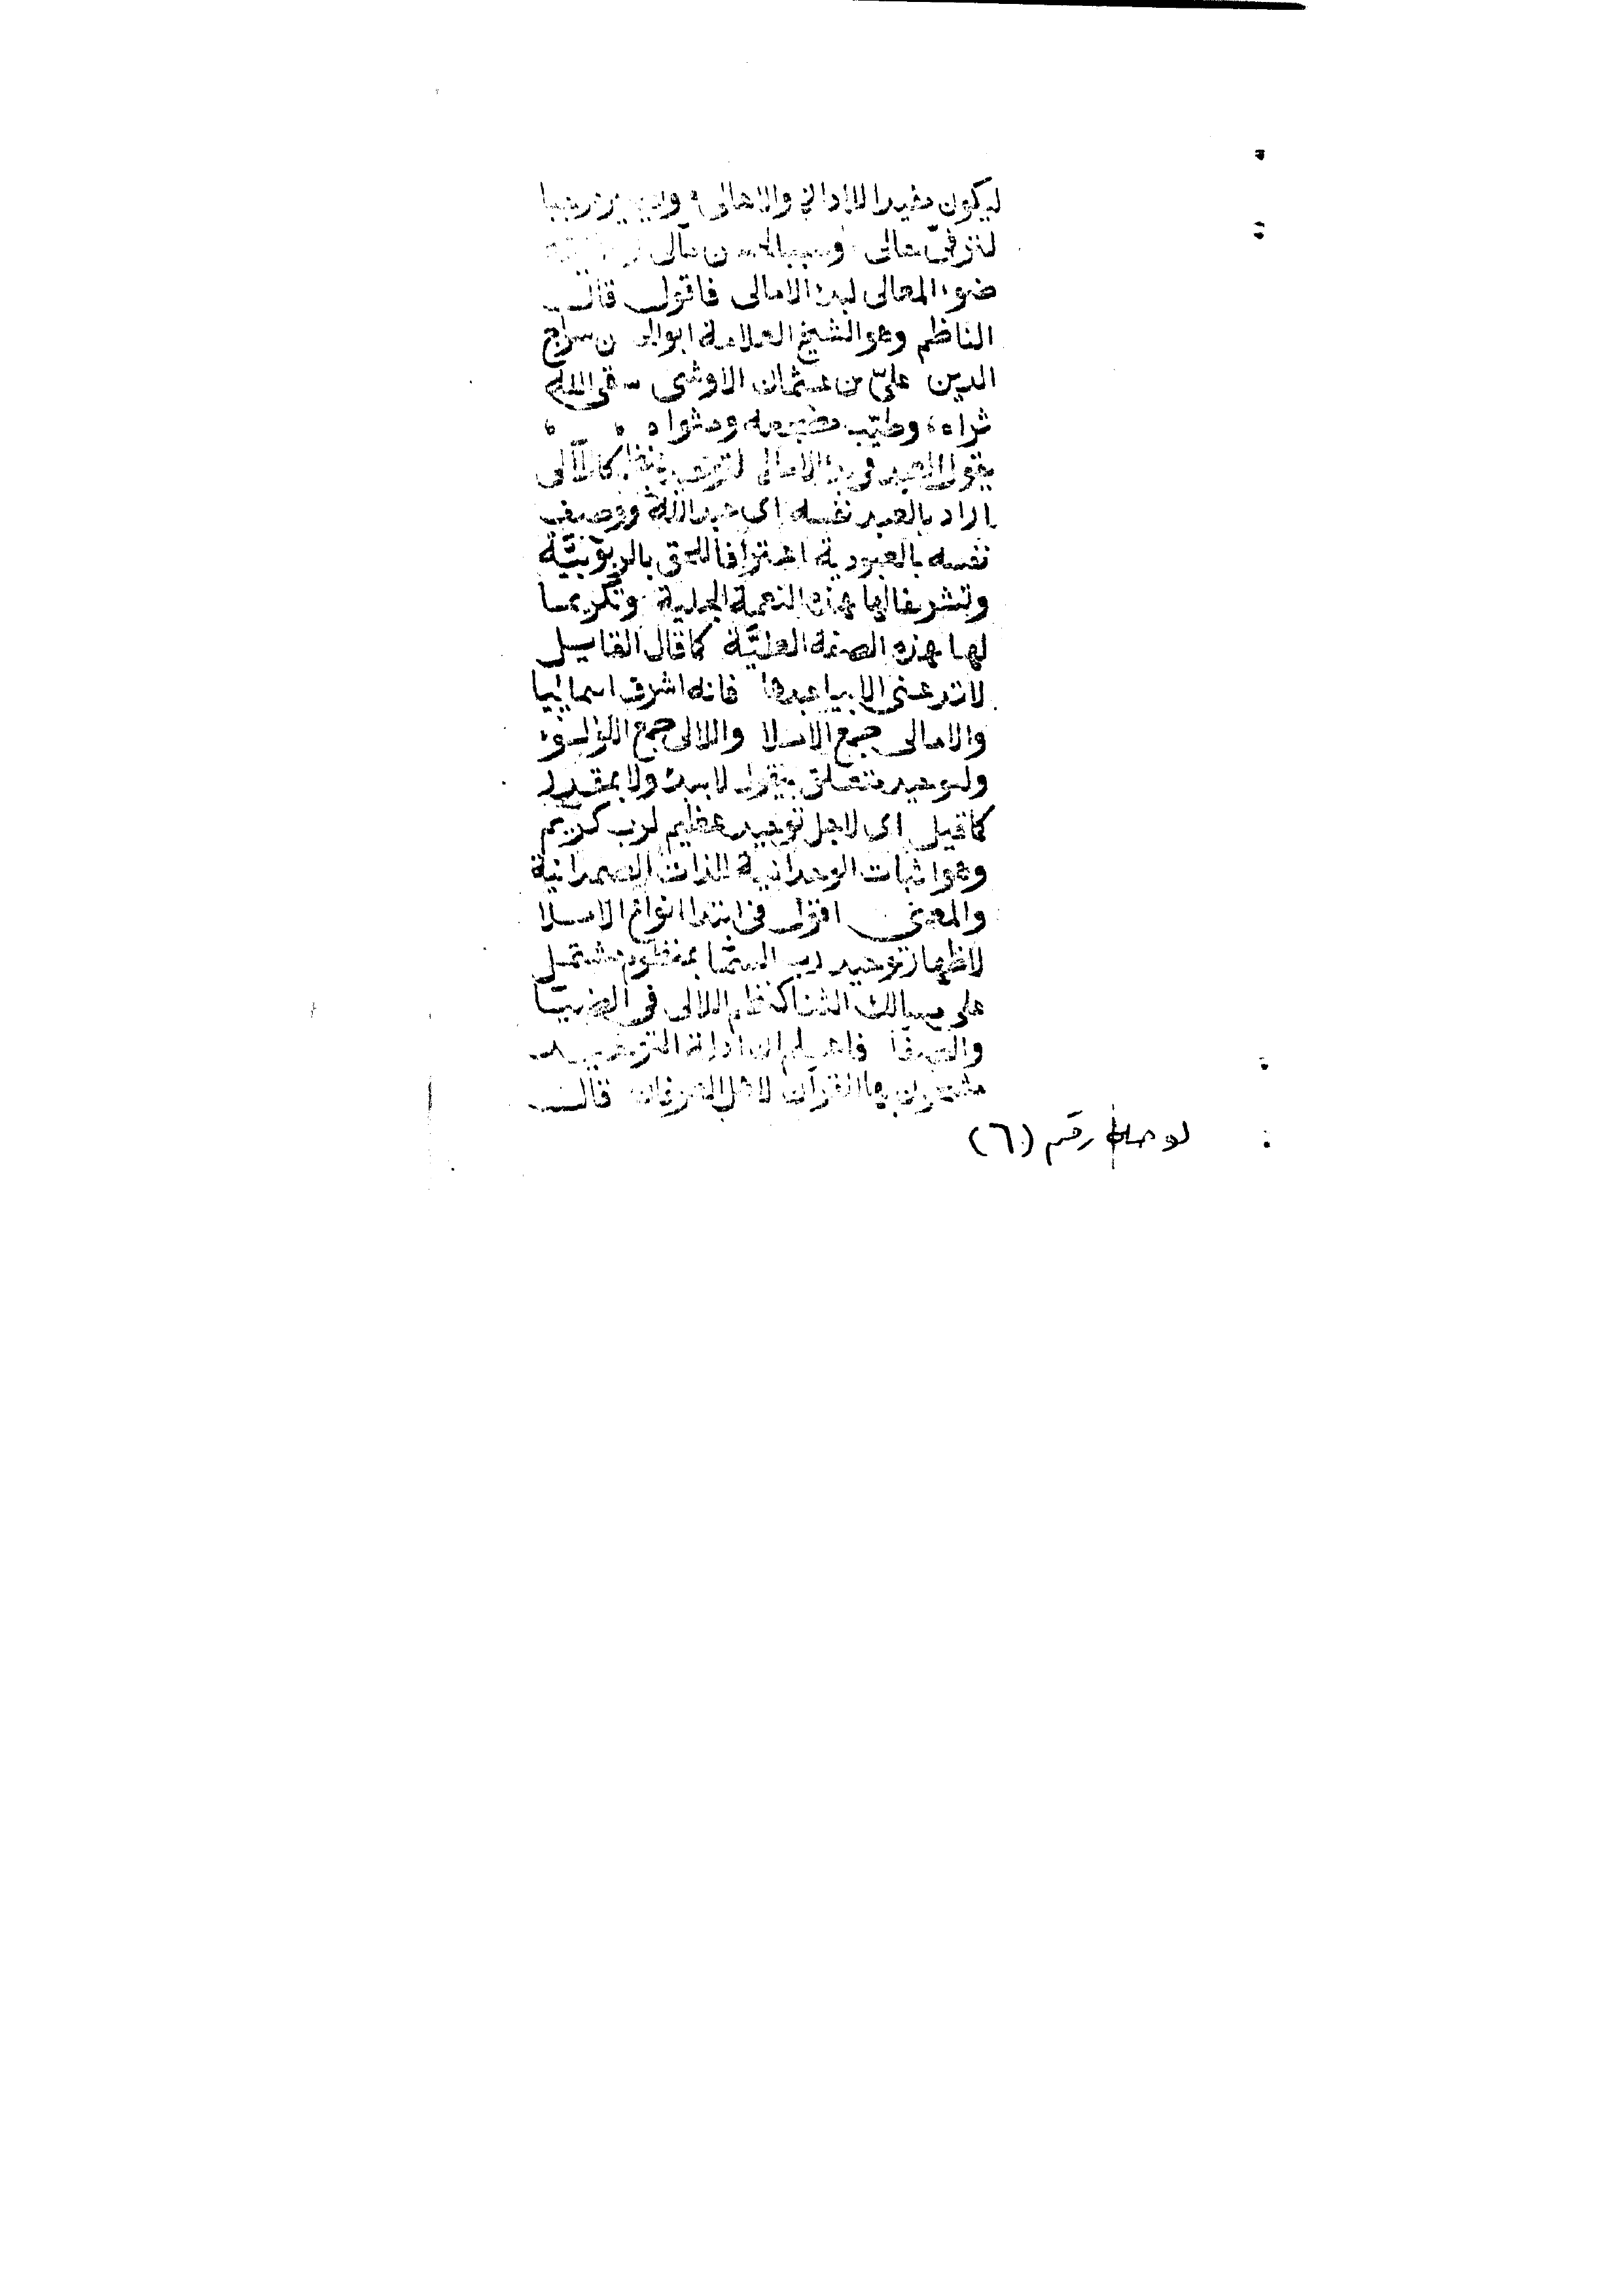 ليكون مفيدا للاداني والاهالي
لترقى حالى وسببا لحسن مآلى
ضوء المعالى لبدء الامالى فاقول قال
الناظم وهو الشيخ العلامة ابوالحسن سراج
الدين علىّ بن عثمان الاوشى سقى الله
ثراه وطيّب مضجعه ومثواه
يقول العبد فى بدء الامالى لتوحيد بنظم كاللآلى
اراد بالعبد نفسه اى عبدالله ووصف
نفسه بالعبودية اعترافا للحق بالربوبيّة
وتشريفا لها بهذه النعمة الجلية وتكريما
لها بهذه الصفة العليّة كما قال القايل
لا تدعنى الا بيا عبدها فانه اشرف اسماييا
والامالى جمع الاملا واللالى جمع اللؤلؤ
ولتوحيد متعلق بيقول لا ببدء ولا بمقدر
كما قيل اى لاجل توحيد عظيم لرب كريم
وهو اثبات الوحدانية للذات الصمدانية
والمعنى اقول فى ابتدا انواع الاملا
لاظهار توحيد رب السما بمنظوم مشتمل
على مسالك الثنا كنظم اللالى فى الضيا
والصفا فاعلم ان ادلة التوحيد
مشحون بها القرآن لاهل العرفان قال
لوحة رقم (٦)